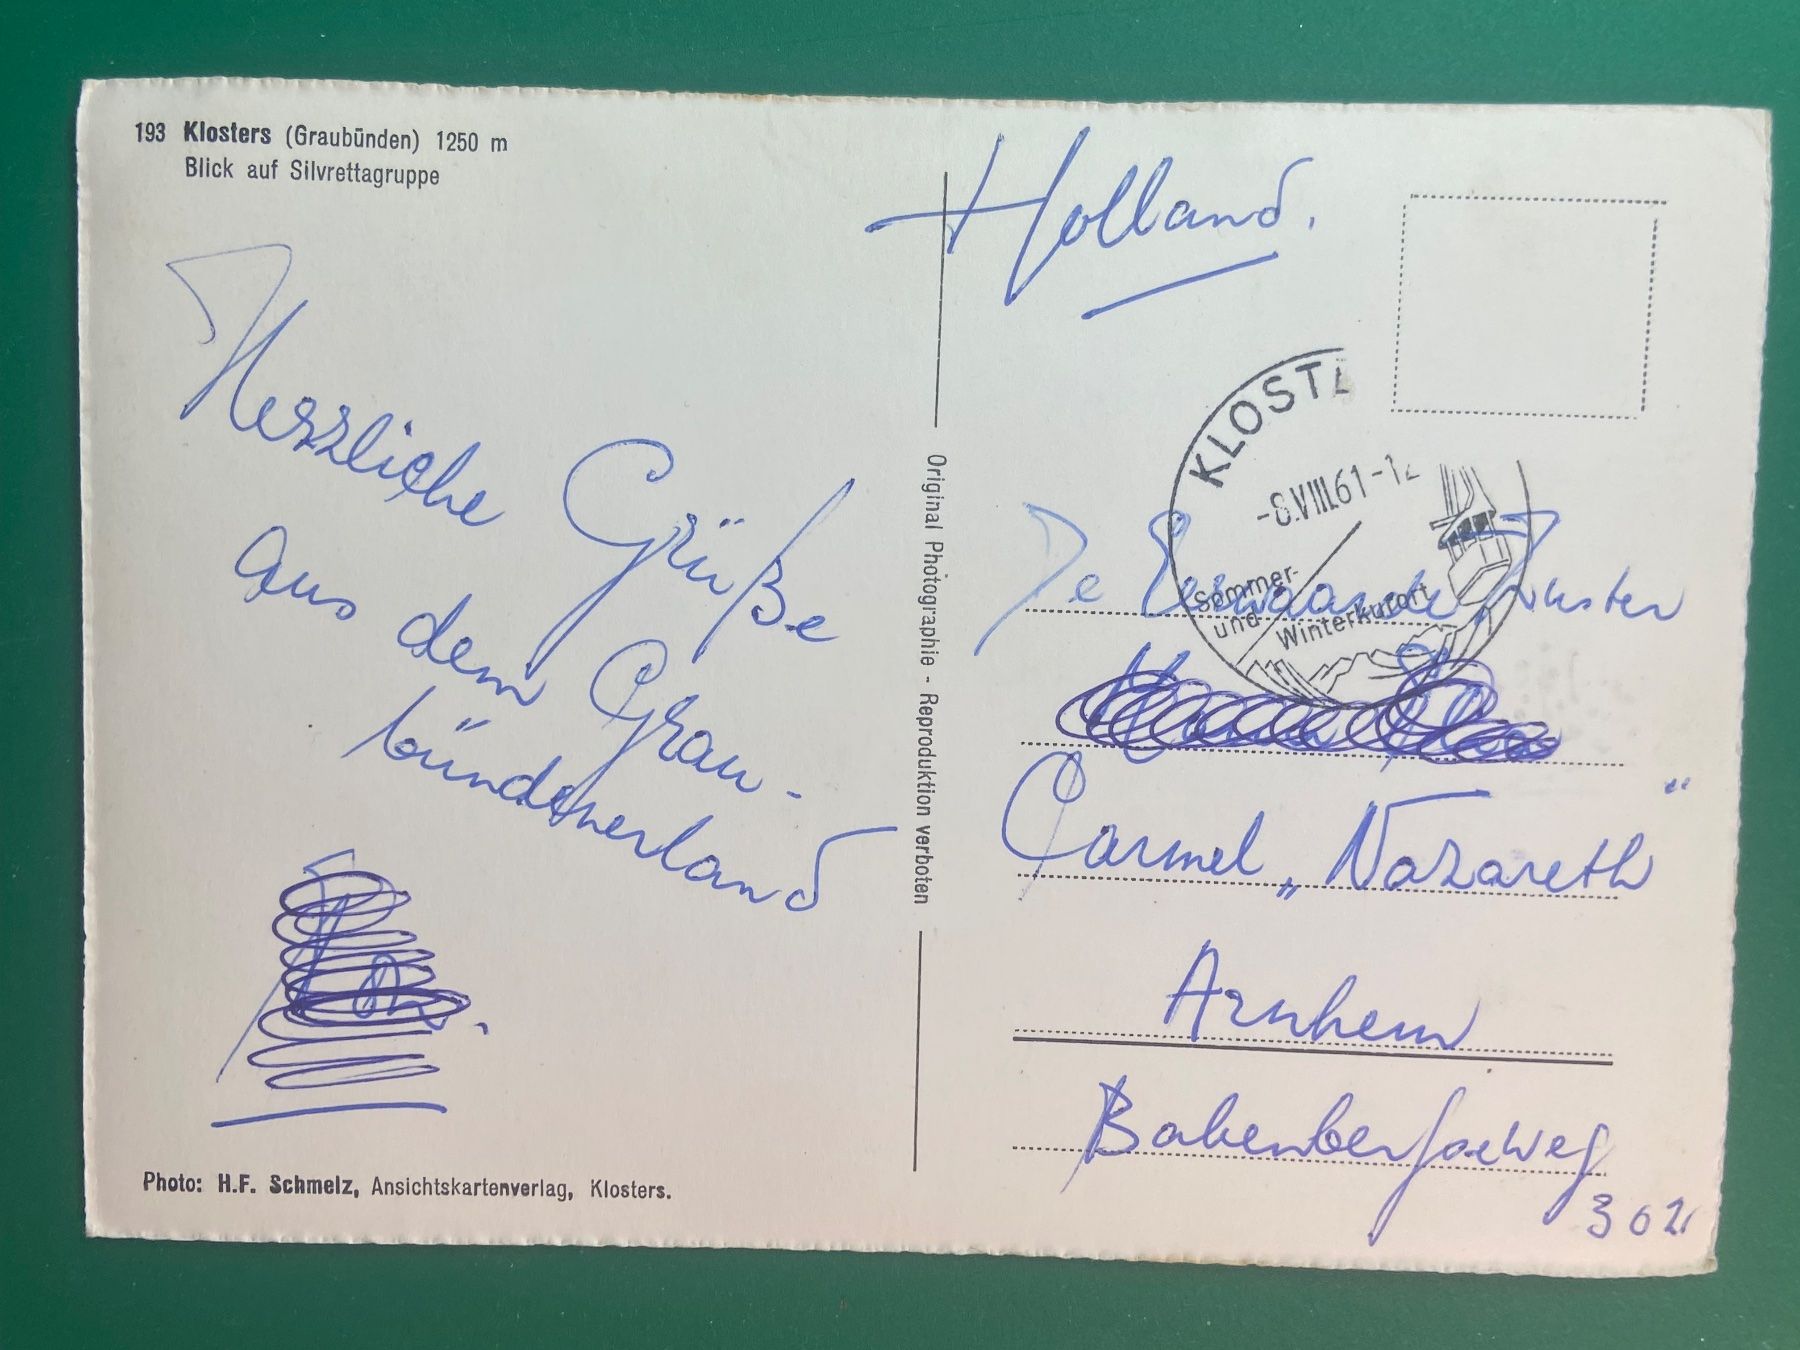 193 Klosters (Graubünden) 1250 m
Blick auf Silvrettagruppe
Herzliche Grüße
aus dem Grau-
bündenerland
Photo: H.F. Schmelz, Ansichtskartenverlag, Klosters.
Original Photographie - Reproduktion verboten
Holland.
KLOST
-8.VIII.61-12
Sommer-
und Winterkurort
De Eerwaarde Zuster
Carmel „Nazareth“
Arnhem
Bakenbergseweg
302